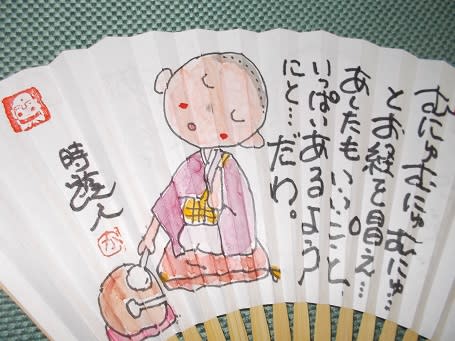 むにゅむにゅむにゅ…
とお経を唱え…
あしたもいいこと、
いっぱいあるよう
にと…だわ。
時遊人
か